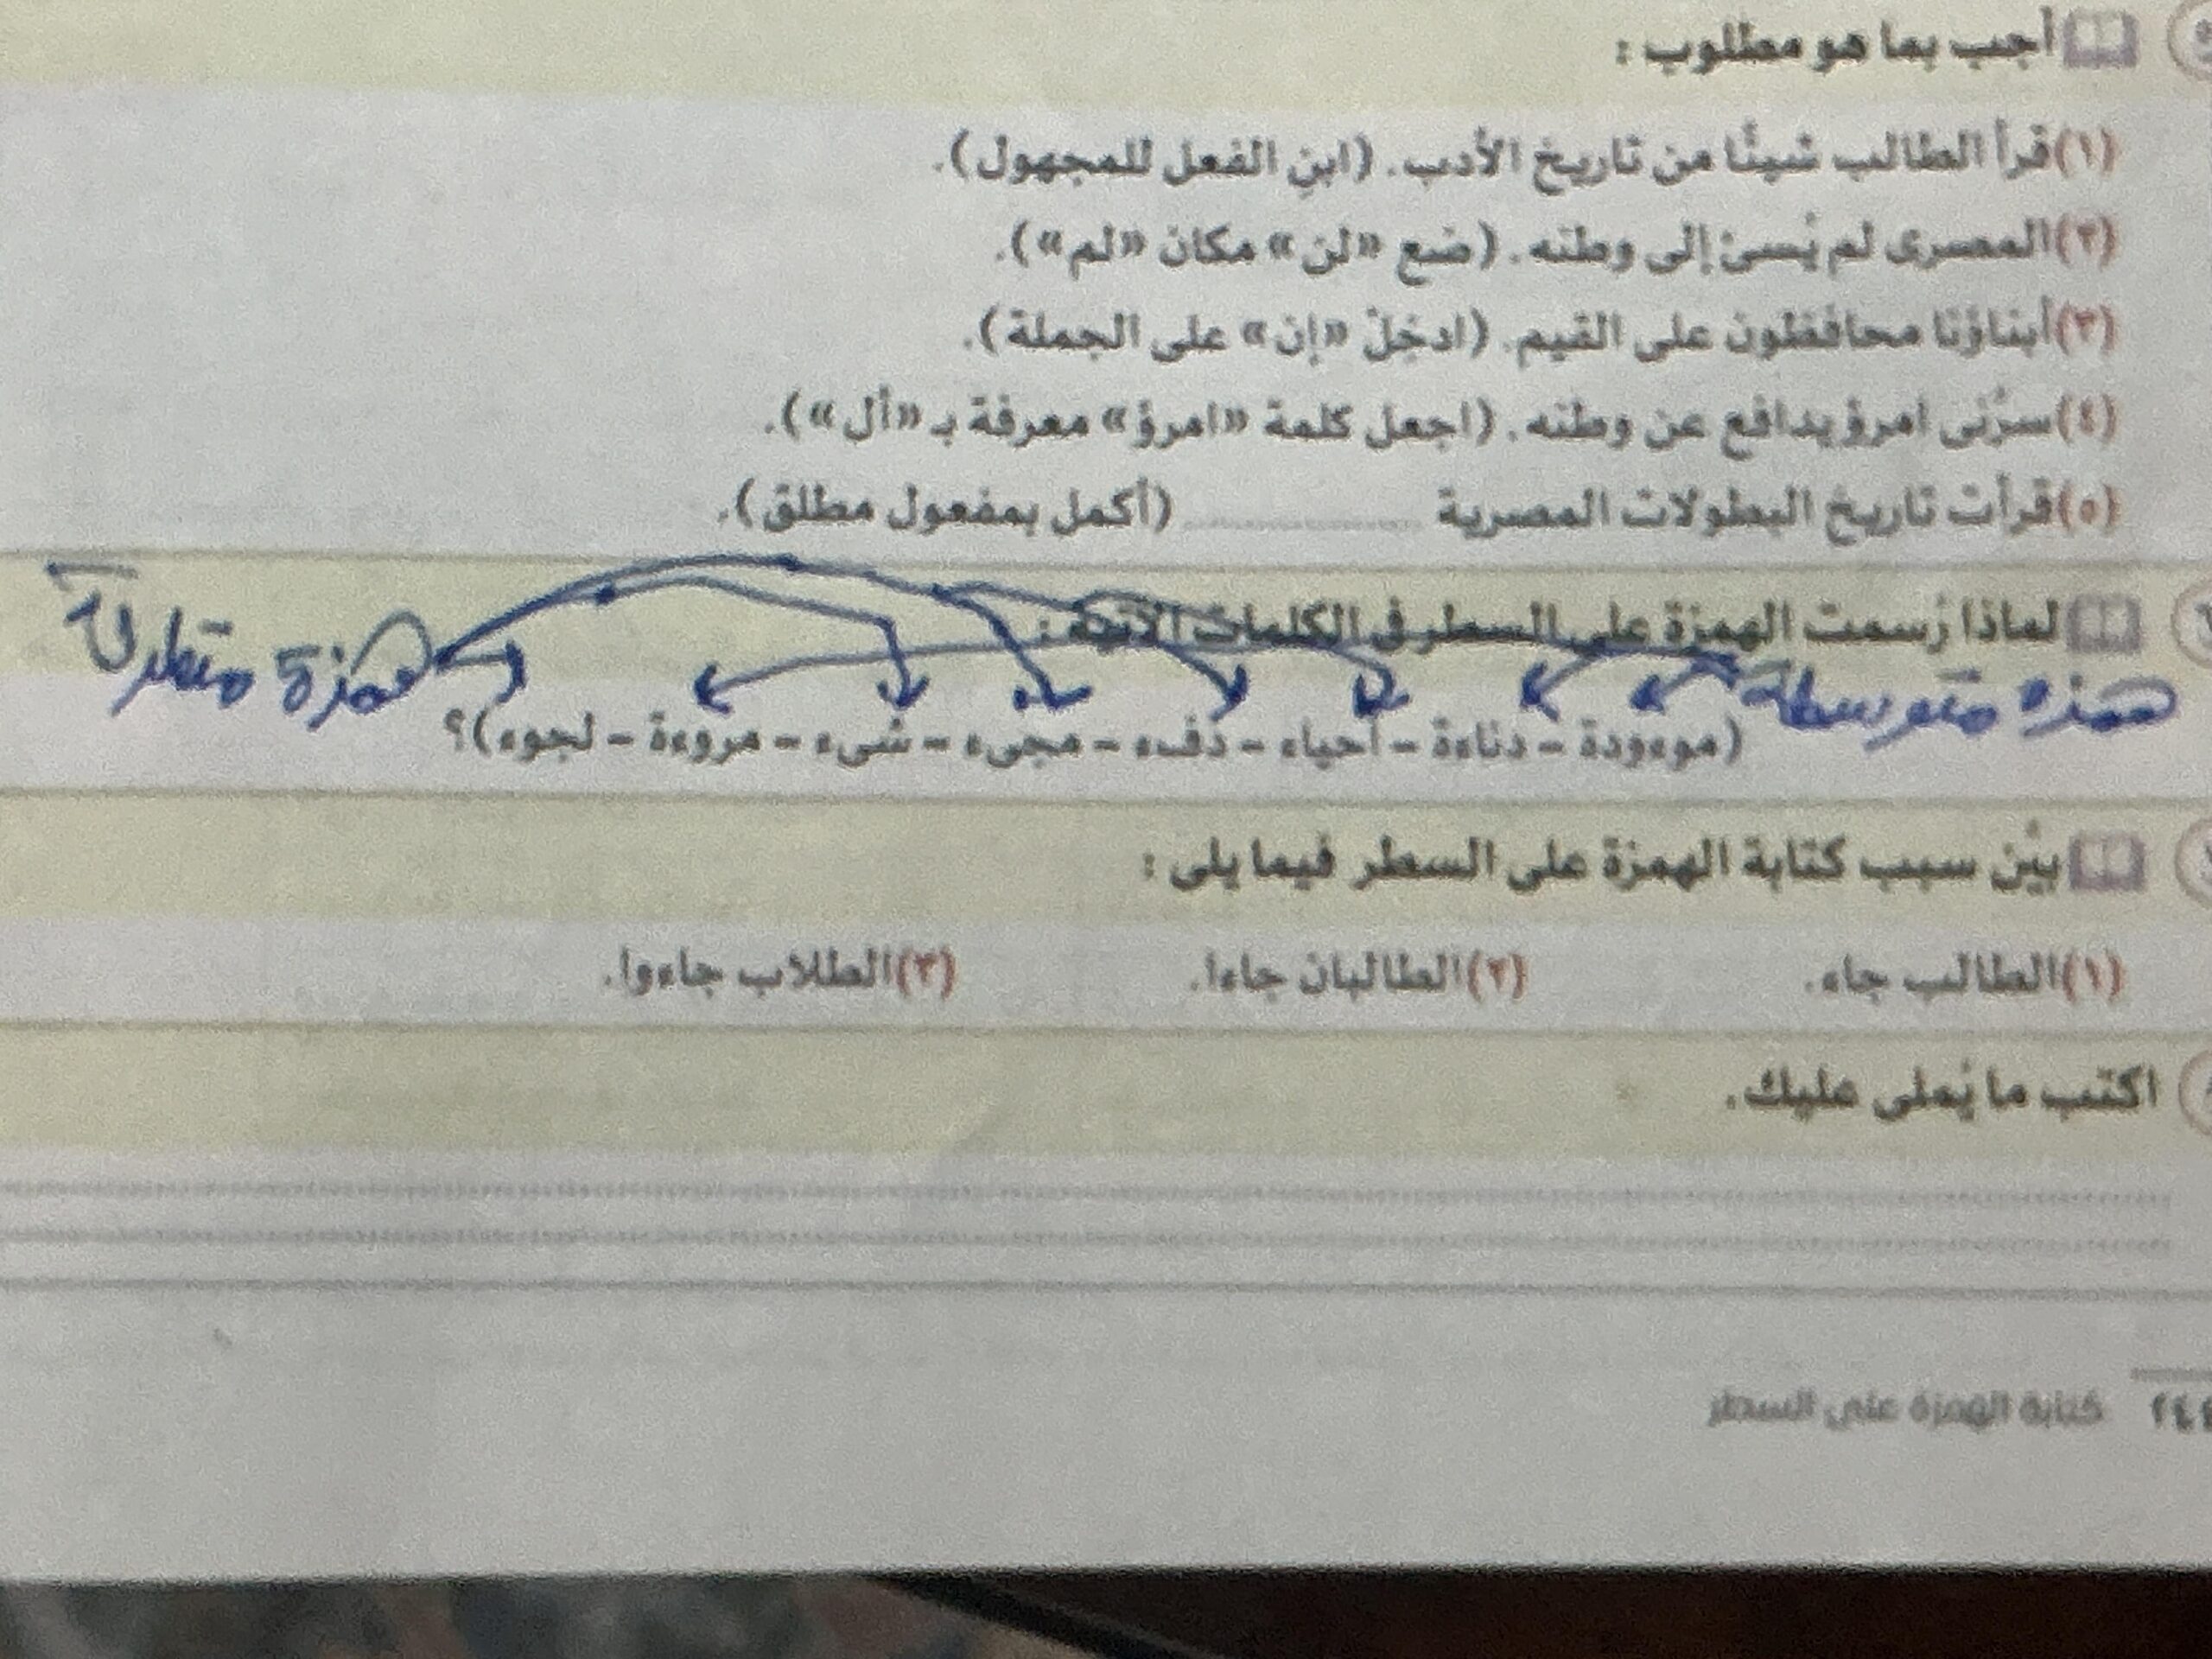 أجب بما هو مطلوب :
(١) قرأ الطالب شيئًا من تاريخ الأدب. (ابنِ الفعل للمجهول).
(٢) المصرى لم يُسئ إلى وطنه. (ضع «لن» مكان «لم»).
(٣) أبناؤنا محافظون على القيم. (ادخِلْ «إن» على الجملة).
(٤) سرَّنى امرؤ يدافع عن وطنه. (اجعل كلمة «امرؤ» معرفة بـ «أل»).
(٥) قرأت تاريخ البطولات المصرية ............ (أكمل بمفعول مطلق).
لماذا رُسمت الهمزة على السطر فى الكلمات الآتية :
همزه متوسطة
همزة متطرفة
(موءودة – دناءة – أحياء – دفء – مجىء – شىء – مروءة – لجوء)؟
بيِّن سبب كتابة الهمزة على السطر فيما يلى :
(١) الطالب جاء. (٢) الطالبان جاءا. (٣) الطلاب جاءوا.
اكتب ما يُملى عليك.
كتابة الهمزة على السطر